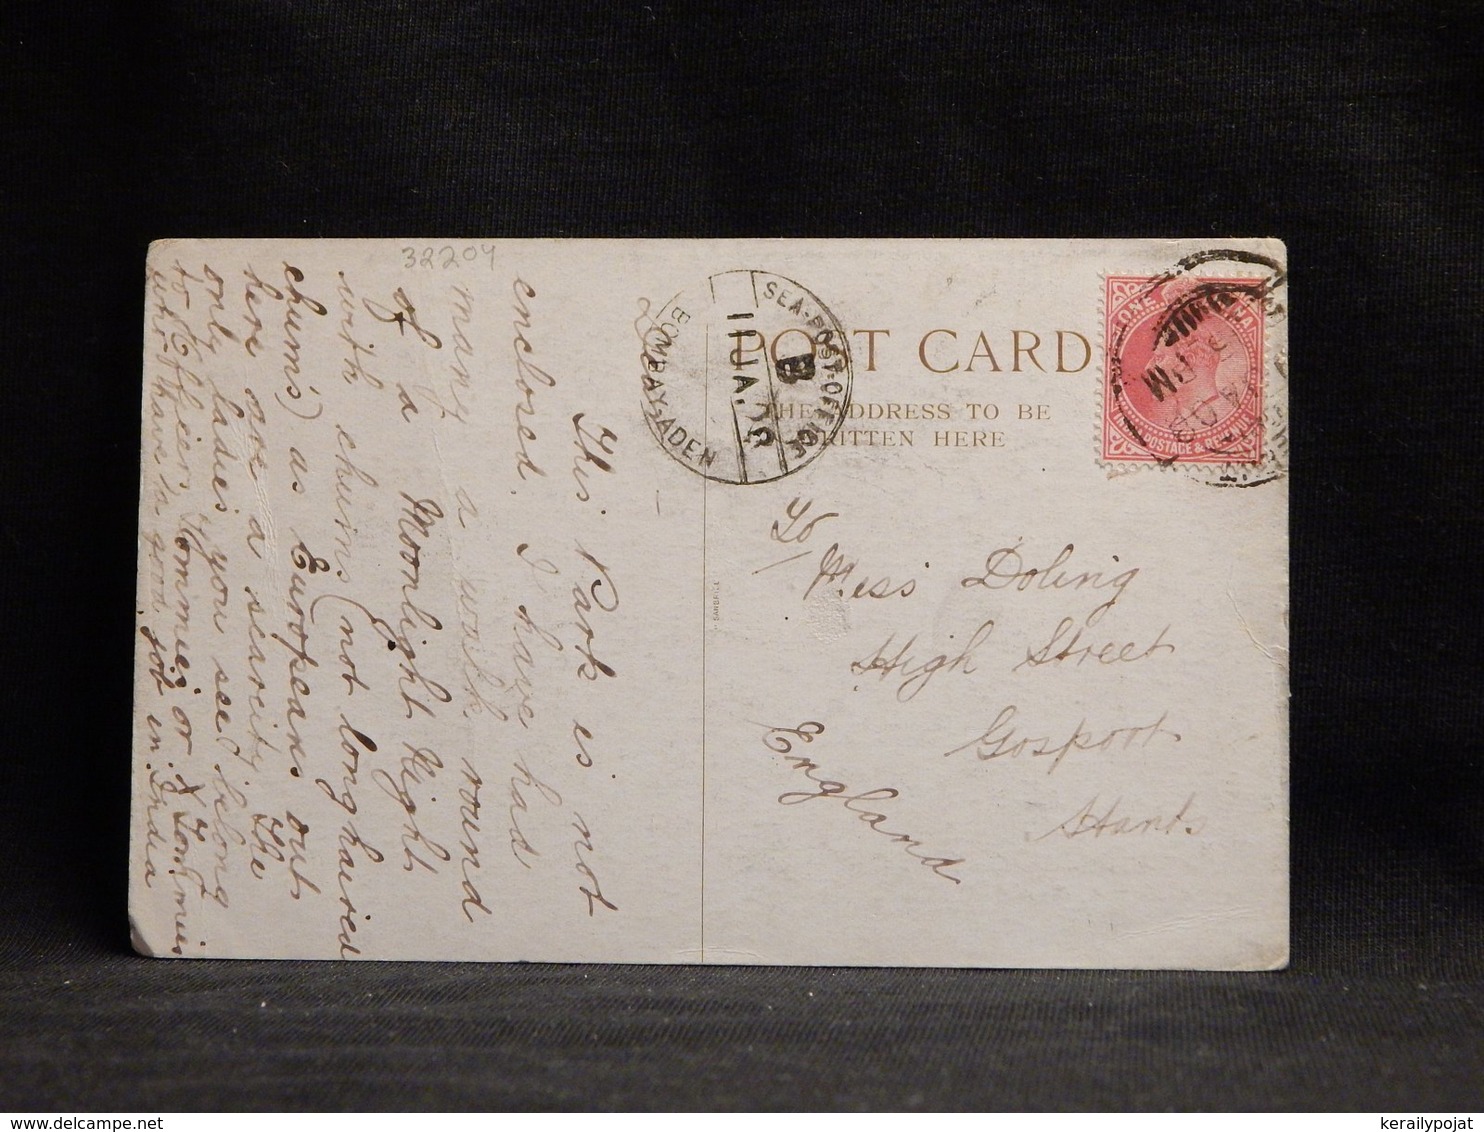 32204
This Park is not
enclosed. I have had
many a walk round
of a Moonlight Night
with chums (not longhaired
chums) as Europeans out
here are a scarcity. The
only ladies you see belong
to Officers, Tommies, or
who have a good job in India
SEA-POST-OFFICE
B
11 JA. 08
BOMBAY-ADEN
POST CARD
THE ADDRESS TO BE
WRITTEN HERE
ONE ANNA
POSTAGE & REVENUE
PM
To
Miss Doling
High Street
Gosport
Hants
England
kerailypojat